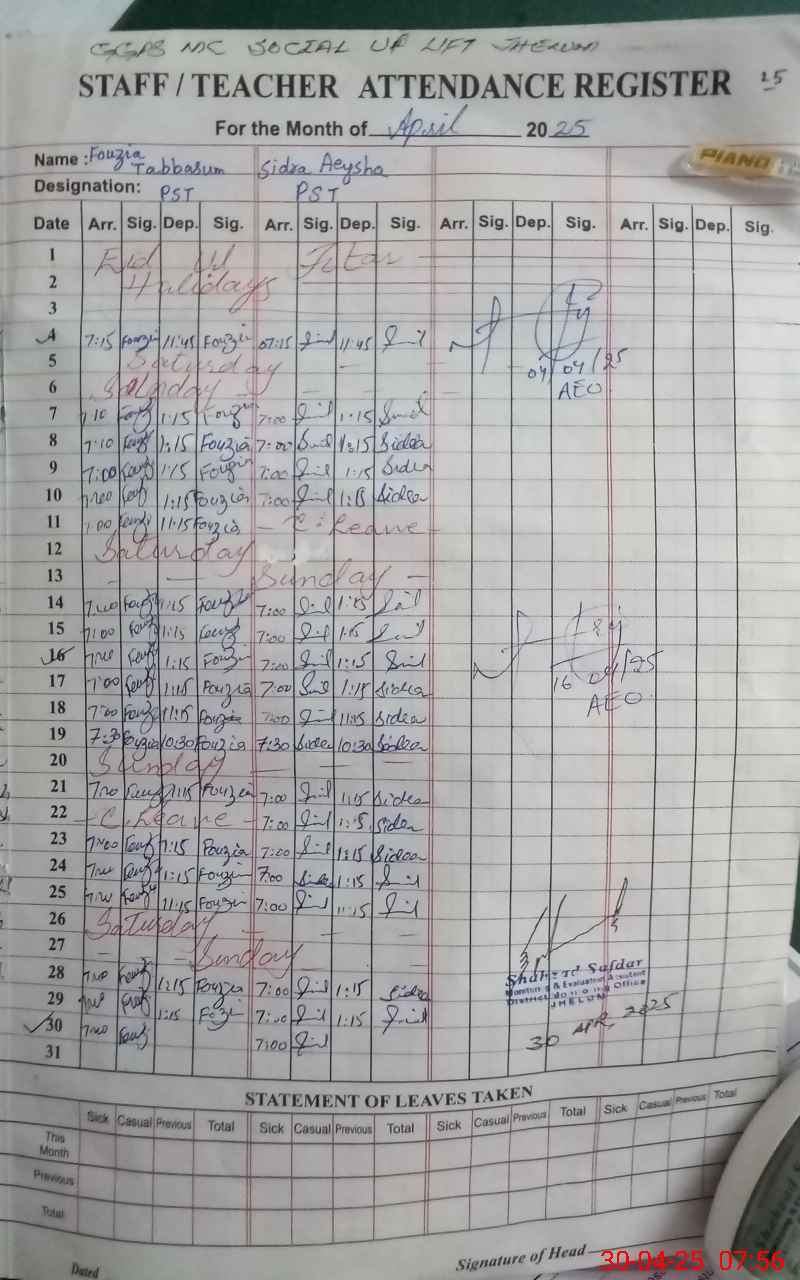 GGPS MC SOCIAL UP LIFT JHELUM
STAFF / TEACHER ATTENDANCE REGISTER 15
For the Month of April 2025
PIANO
Name : Fouzia Tabbasum Sidra Aeysha
Designation: PST PST
Date Arr. Sig. Dep. Sig. Arr. Sig. Dep. Sig. Arr. Sig. Dep. Sig. Arr. Sig. Dep. Sig.
1 Eid Ul Fitar
2 Halidays
3
4 7:15 Fouzia 11:45 Fouzia 07:15 11:45
04/04/25
AEO
5 Saturday
6 Sunday
7 7:10 1:15 Fouzia 7:00 1:15
8 7:10 1:15 Fouzia 7:00 1:15 Sidra
9 7:00 1:15 Fouzia 7:00 1:15 Sidra
10 7:00 1:15 Fouzia 7:00 1:15 Sidra
11 7:00 11:15 Fouzia C. Leave
12 Saturday
13 Sunday
14 7:00 1:15 Fouzia 7:00 1:15
15 7:00 1:15 7:00 1:15
16 7:00 1:15 Fouzia 7:00 1:15
16 04/25
AEO
17 7:00 1:15 Fouzia 7:00 1:15 Sidra
18 7:00 11:15 Fouzia 7:00 11:15 Sidra
19 7:30 Fouzia 10:30 Fouzia 7:30 Sidra 10:30 Sidra
20 Sunday
21 7:00 1:15 Fouzia 7:00 1:15 Sidra
22 C. Leave 7:00 1:15 Sidra
23 7:00 1:15 Fouzia 7:00 1:15 Sidra
24 7:00 1:15 Fouzia 7:00 Sidra 1:15
25 7:00 11:15 Fouzia 7:00 11:15
26 Saturday
27 Sunday
Shahzad Safdar
Monitoring & Evaluation Assistant
District Monitoring Office
JHELUM
28 7:00 1:15 Fouzia 7:00 1:15 Sidra
29 7:00 1:15 7:00 1:15
30 7:00 7:00
30 APR 2025
31
STATEMENT OF LEAVES TAKEN
Sick Casual Previous Total Sick Casual Previous Total Sick Casual Previous Total Sick Casual Previous Total
This Month
Previous
Total
Dated Signature of Head
30-04-25 07:56